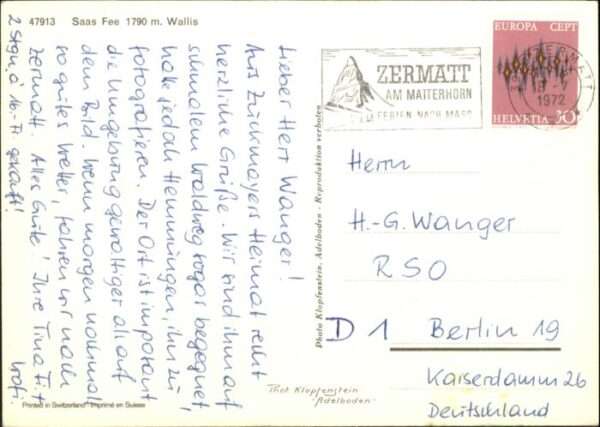 47913 Saas Fee 1790 m. Wallis
Lieber Herr Wanger!
Aus Zuckmayers Heimat recht
herzliche Grüße. Wir sind ihm auf
schmalem Waldweg sogar begegnet,
hatte jedoch Hemmungen, ihn zu
fotografieren. Der Ort ist imposant
die Umgebung gewaltiger als auf
dem Bild. Wenn morgen nochmal
so gutes Wetter, fahren wir nach
Zermatt. Alles Gute! Ihre Tina Fi. +
Wofi.
2 Stgn á
gekauft!
Printed in Switzerland - Imprimé en Suisse
Photo Klopfenstein, Adelboden - Reproduktion verboten
ZERMATT
AM MATTERHORN
FERIEN NACH MASS
ZERMATT
1972
EUROPA CEPT
HELVETIA 30
Herrn
H.-G. Wanger
RSO
D 1 Berlin 19
Kaiserdamm 26
Deutschland
Phot Klopfenstein
"Adelboden"